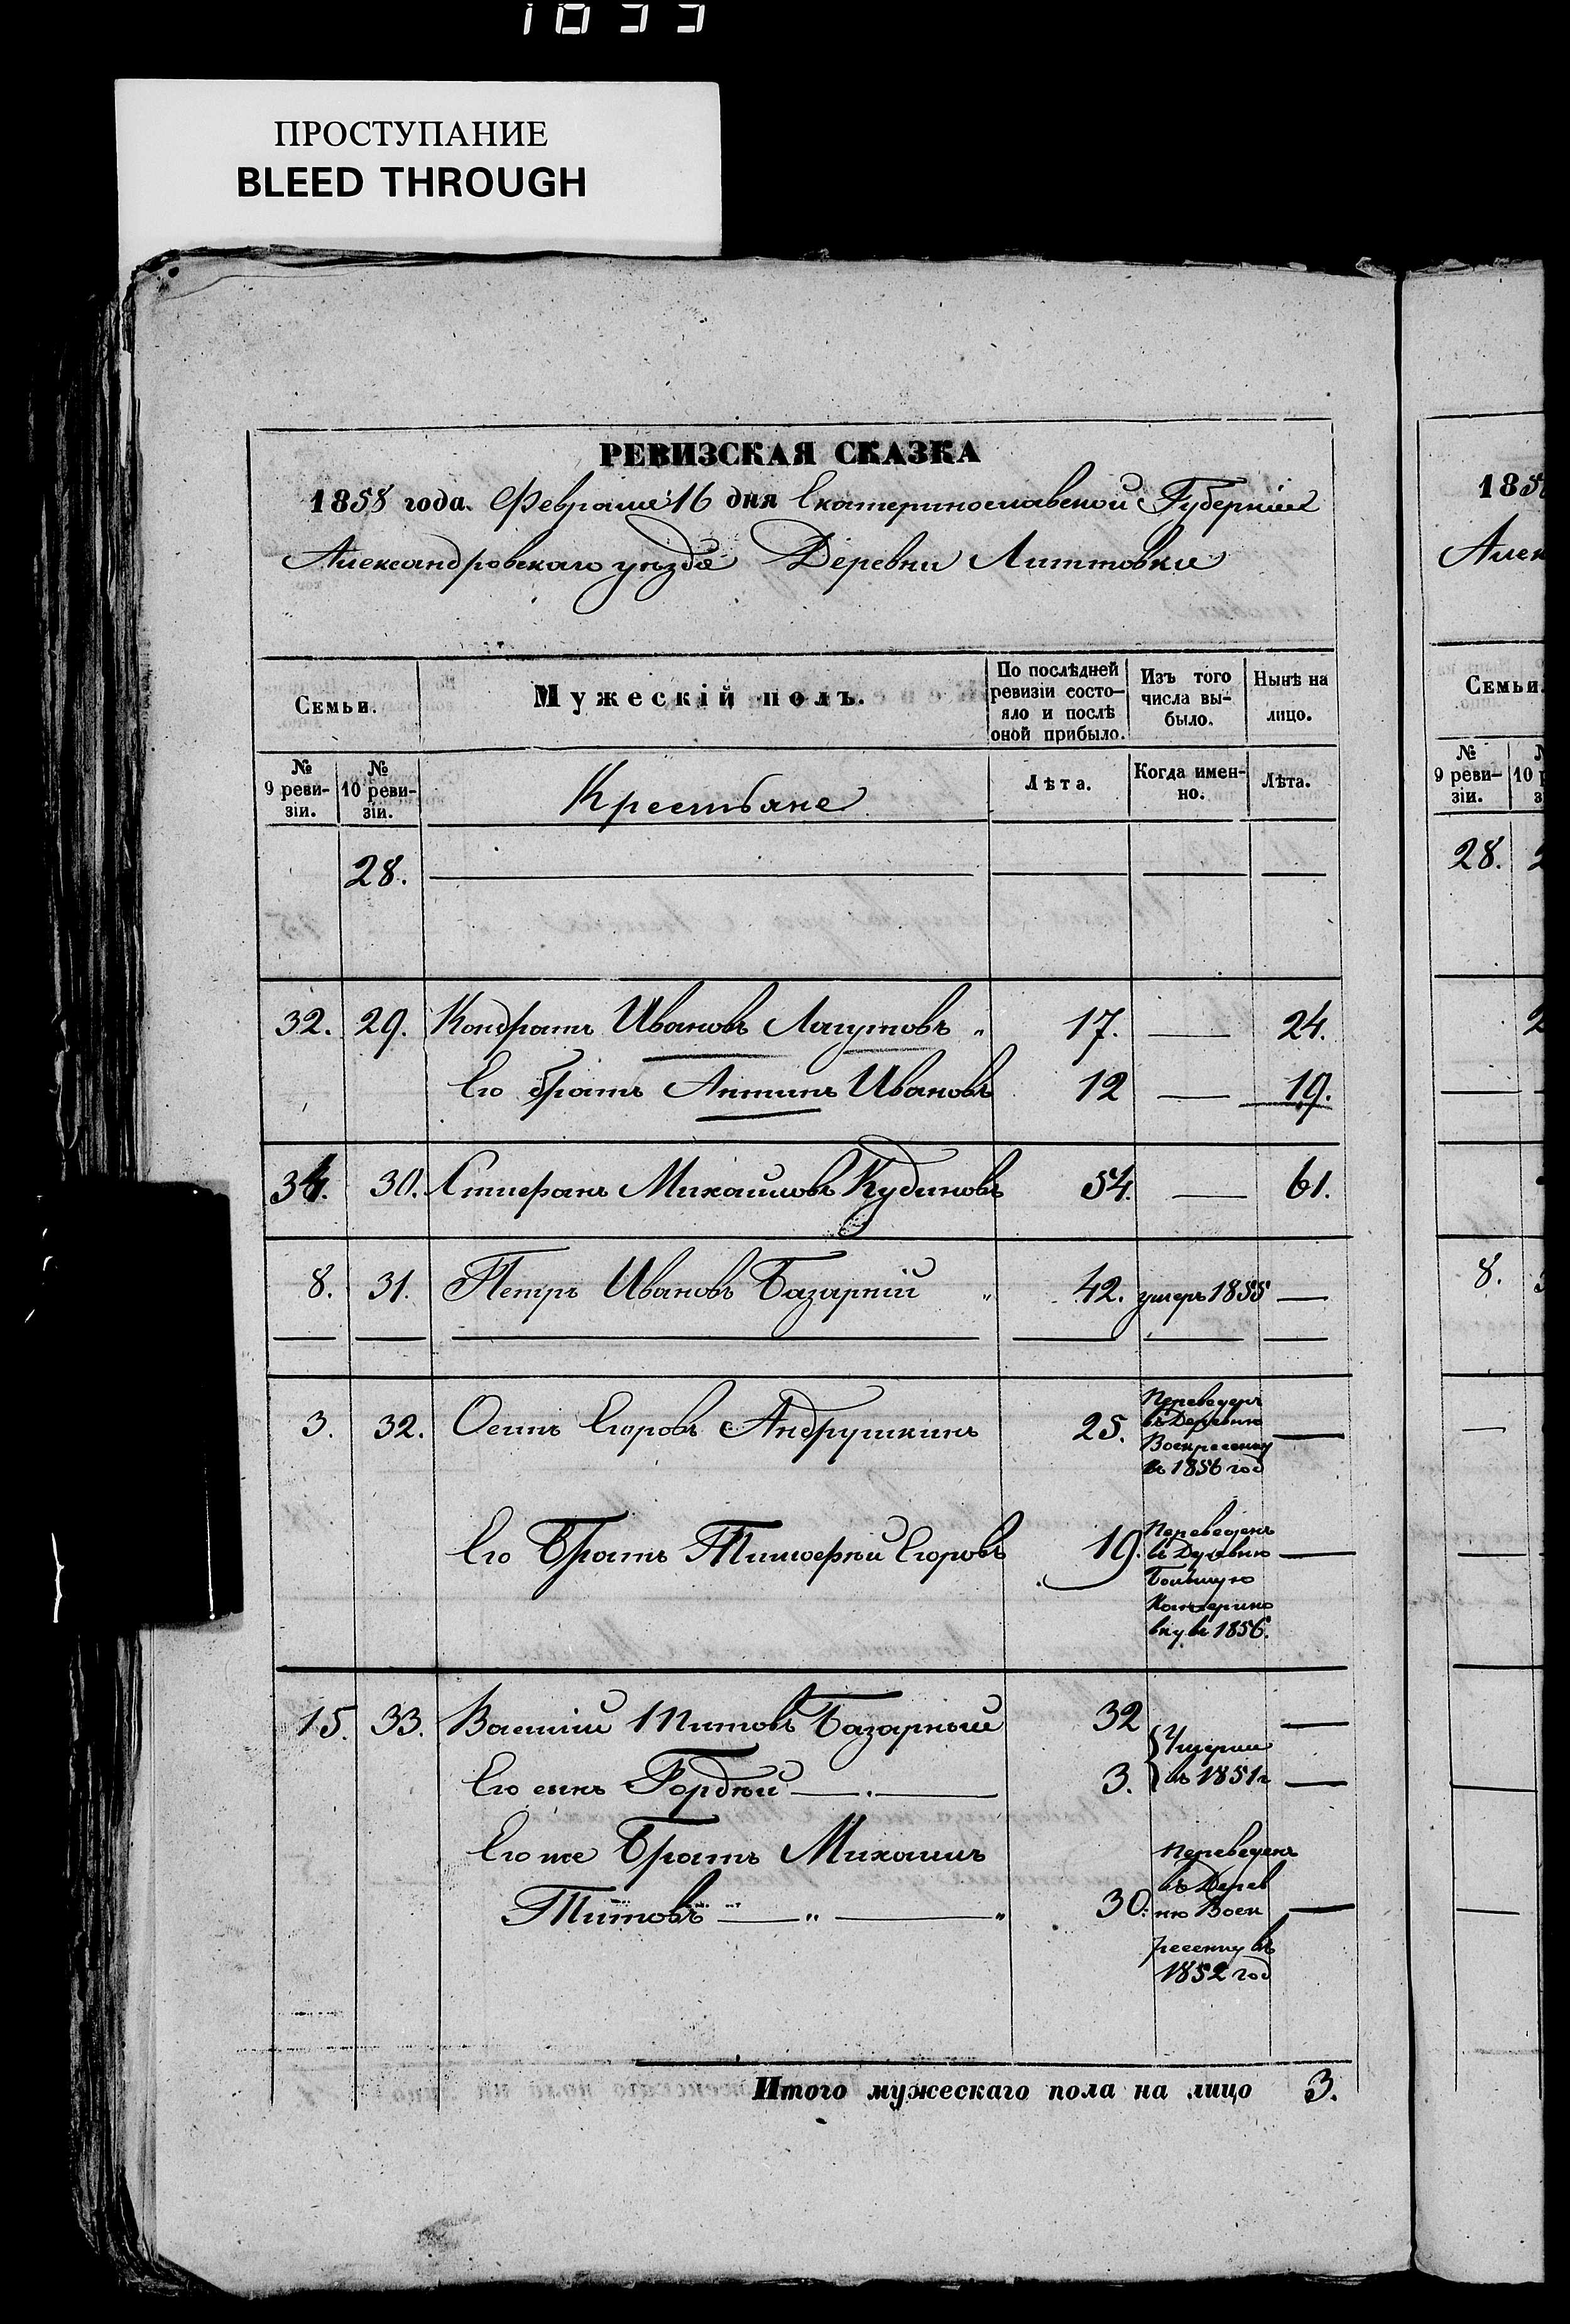 1033
ПРОСТУПАНИЕ
BLEED THROUGH
РЕВИЗСКАЯ СКАЗКА
1858 года. Февраля 16 дня Екатеринославской Губерніи
Александровскаго уѣзда Деревни Литтовки
Семьи.
Мужескій полъ.
По послѣдней ревизіи состо-
яло и послѣ
оной прибыло.
Изъ того
числа вы-
было.
Нынѣ на
лицо.
№
9 реви-
зіи.
№
10 реви-
зіи.
Крестьяне
Лѣта.
Когда имен-
но.
Лѣта.
28.
32. 29. Кондратъ Ивановъ Лагутовъ " 17. — 24.
Его братъ Антипъ Ивановъ 12 — 19.
34. 30. Степанъ Михайловъ Кудиновъ 54. — 61.
8. 31. Петръ Ивановъ Базарній " 42. умеръ 1855 —
3. 32. Осипъ Егоровъ Андрушкинъ 25. —
Переведенъ
въ Деревню
Воскресенку
въ 1856 год
Его Братъ Тимофей Егоровъ 19. —
Переведенъ
въ Деревню
Большую
Катерино
вку въ 1856.
15. 33. Василій Титовъ Базарный 32 —
Его сынъ Гордѣй — . — 3. —
Умерли
въ 1851 г
Его же Братъ Михаилъ
Титовъ — " — " 30. —
Переведенъ
въ Дерев
ню Воск
ресенку въ
1852 год
Итого мужескаго пола на лицо 3.
185
Алек
Семьи.
№
9 реви-
зіи.
10
28.
8.